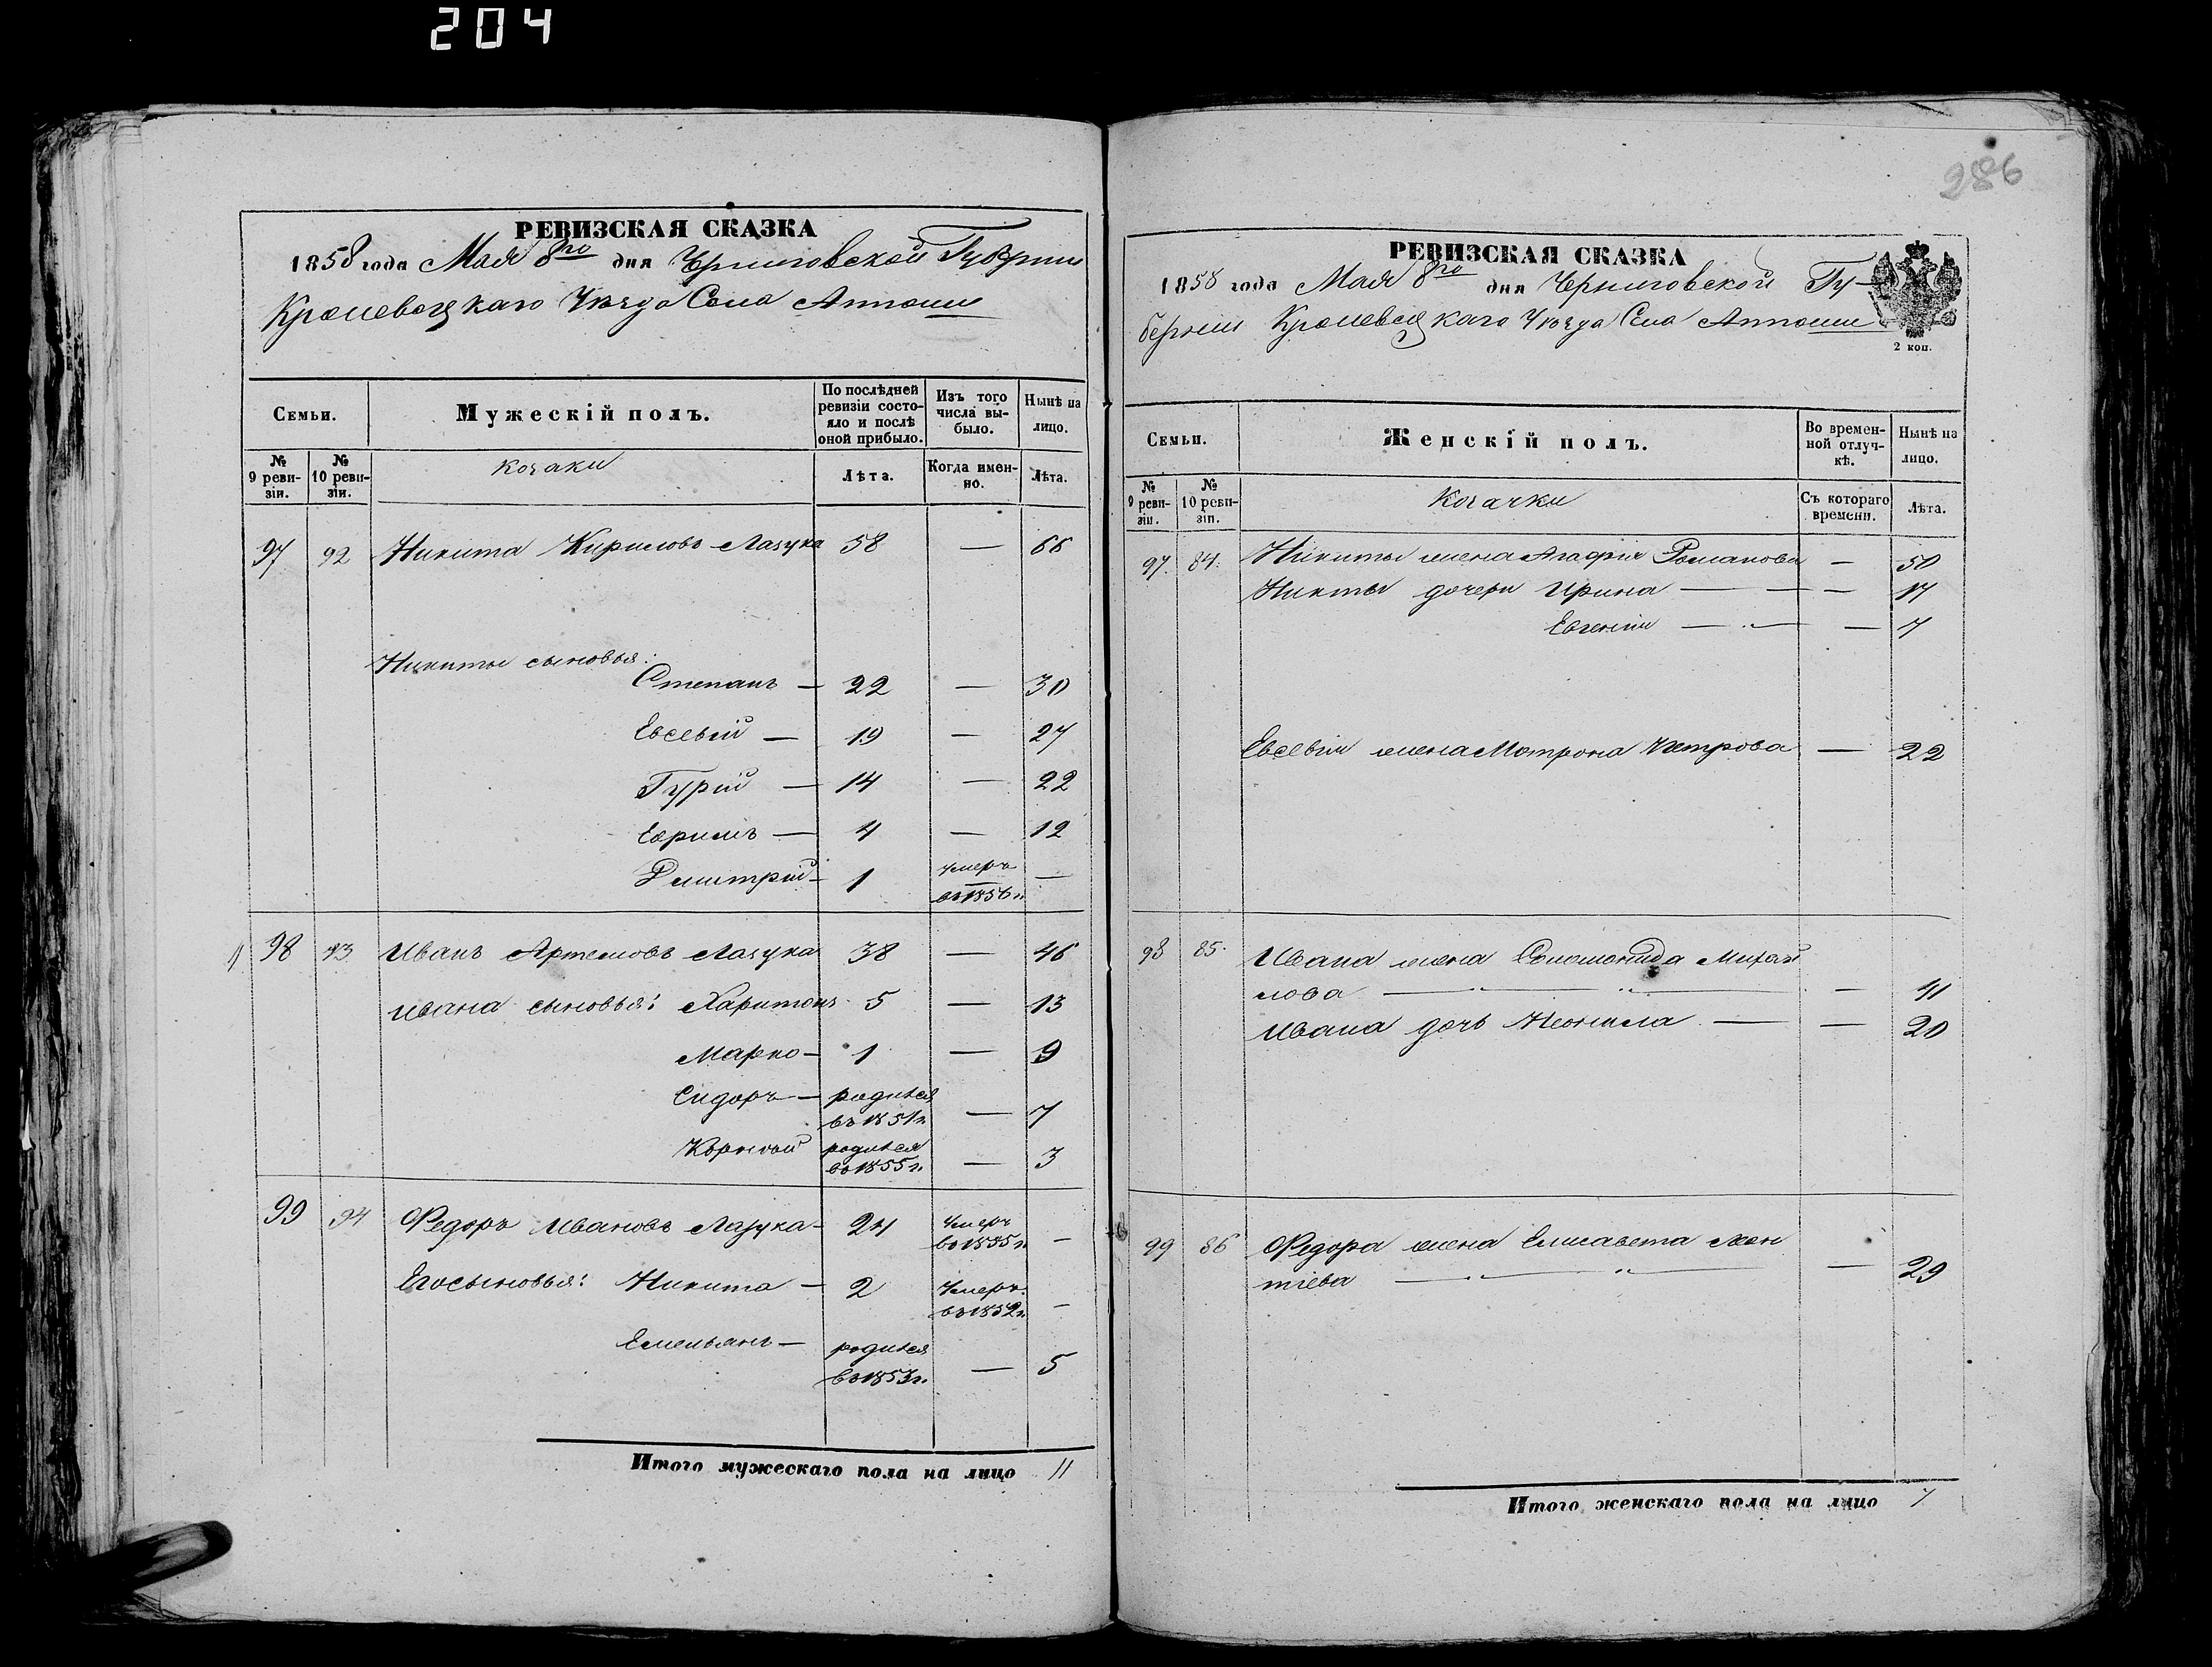 204
286
РЕВИЗСКАЯ СКАЗКА
1858 года Мая 8го дня Черниговской Губерніи
Кролевецкаго Уѣзда Села
Семьи. Мужескій полъ. По послѣдней ревизіи состояло и послѣ оной прибыло. Изъ того числа выбыло. Нынѣ на лицо.
№ 9 ревизіи. № 10 ревизіи. Козаки Лѣта. Когда именно. Лѣта.
97 92 Никита Кириловъ Лазука 58 — 66
Никиты сыновья:
Степанъ — 22 — 30
Евсевій — 19 — 27
Гурій — 14 — 22
Ефримъ — 4 — 12
Дмитрій — 1 умеръ въ 1856 г. —
98 93 Иванъ Артемовъ Лазука 38 — 46
Ивана сыновья: Харитонъ 5 — 13
Марко — 1 — 9
Сидоръ — родился въ 1851 г. — 7
Корнѣй родился въ 1855 г. — 3
99 94 Федоръ Ивановъ Лазука — 24 Умеръ въ 1855 г. —
Его сыновья: Никита — 2 Умеръ въ 1852 г. —
Емельянъ — родился въ 1853 г. — 5
Итого мужескаго пола на лицо 11
РЕВИЗСКАЯ СКАЗКА
1858 года Мая 8го дня Черниговской Гу-
берніи Кролевецкаго Уѣзда Села
2 коп.
Семьи. Женскій полъ. Во временной отлучкѣ. Нынѣ на лицо.
№ 9 ревизіи. № 10 ревизіи. Козачки Съ котораго времени. Лѣта.
97. 84. Никиты жена Агафія Романова — 50
Никиты дочери Ирина — — 17
Евгенія — " — — 7
Евсевія жена Мотрона Петрова — 22
98 85. Ивана жена Соломонида Михай
лова — " — " — — 41
Ивана дочь Неонила — — 20
99 86 Федора жена Елисавета Леон
тіева — " — " — — 29
Итого женскаго пола на лицо 7